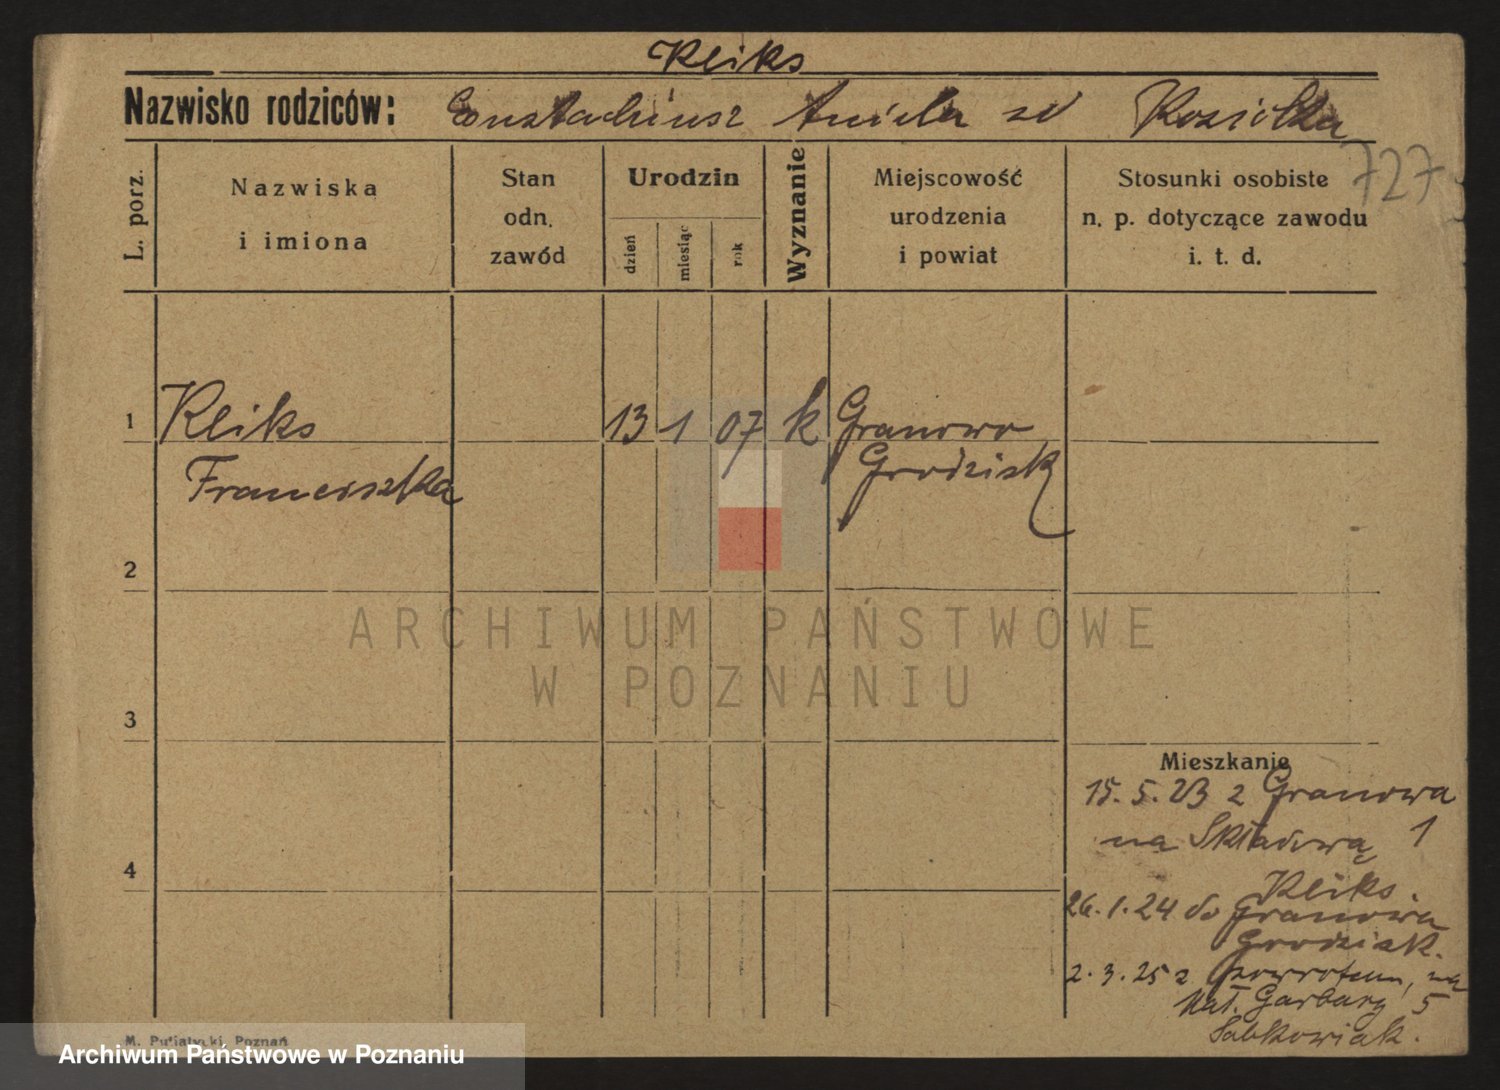 Kliks
Nazwisko rodziców: Eustachiusz Aniela zd Koziołka
727
L. porz.
Nazwiska
i imiona
Stan
odn.
zawód
Urodzin
dzień
miesiąc
rok
Wyznanie
Miejscowość
urodzenia
i powiat
Stosunki osobiste
n. p. dotyczące zawodu
i. t. d.
1 Kliks 13 1 07 k Granowo
Franciszka Grodzisk
2
3
4
Mieszkanie
15.5.23 z Granowa
na Składową 1
Kliks.
26.1.24 do Granowa
Grodzisk.
2.3.25 z powrotem, na
Mał. Garbary 5
Sobkowiak.
ARCHIWUM PAŃSTWOWE
W POZNANIU
Poznań
Archiwum Państwowe w Poznaniu